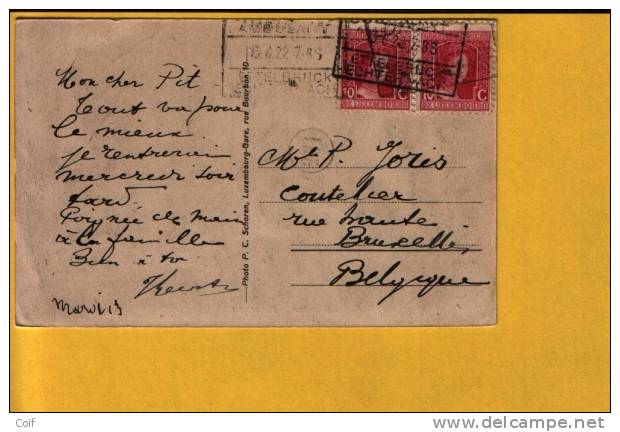 Mon cher Pit
Tout va pour
le mieux
je rentrerai
mercredi soir
tard
Poignée de main
à la famille
Bien à toi
Mardi 13
Photo P. C. Schoren, Luxembourg-Gare, rue Bourbon 10
AMBULANT
13.6.22.7-8S
ETTELBRUCK
ETTELBRUCK
ECHTERNACH
10 C
10 C
DE LUXEMBOURG
DE LUXEMBOURG
Mr P. Joris
Coutelier
rue haute
Bruxelles
Belgique
Coif
www.delcampe.net